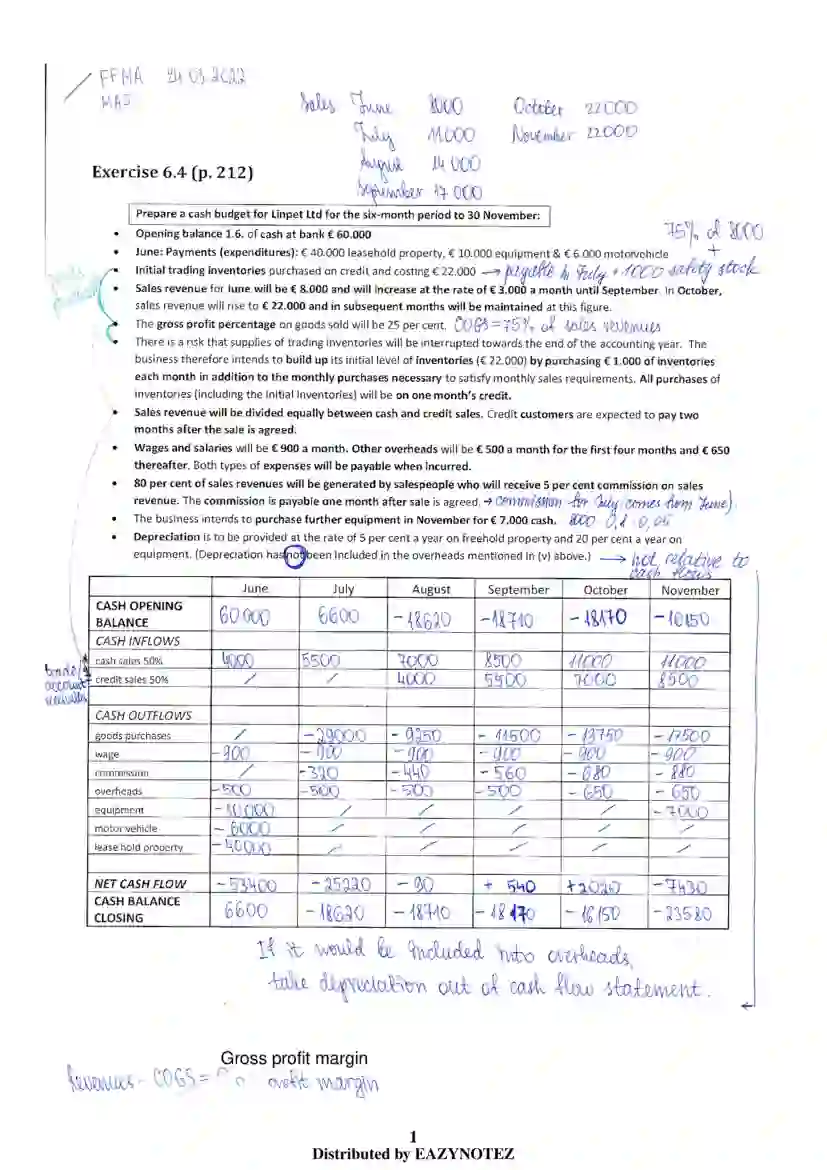 FFMA 24 03 2022
Sales June 8000 October 22000
July 11000 November 22000
August 14 000
September 17 000
Exercise 6.4 (p. 212)
Prepare a cash budget for Linpet Ltd for the six-month period to 30 November:
75% of 8000
+
• Opening balance 1.6. of cash at bank € 60.000
• June: Payments (expenditures): € 40.000 leasehold property, € 10.000 equipment & € 6.000 motorvehicle
• Initial trading inventories purchased on credit and costing € 22.000 → payable in July + 1000 safety stock
• Sales revenue for June will be € 8.000 and will increase at the rate of € 3.000 a month until September. In October,
sales revenue will rise to € 22.000 and in subsequent months will be maintained at this figure.
• The gross profit percentage on goods sold will be 25 per cent. COGS = 75% of sales revenues
• There is a risk that supplies of trading inventories will be interrupted towards the end of the accounting year. The
business therefore intends to build up its initial level of inventories (€ 22.000) by purchasing € 1.000 of inventories
each month in addition to the monthly purchases necessary to satisfy monthly sales requirements. All purchases of
inventories (including the initial inventories) will be on one month's credit.
• Sales revenue will be divided equally between cash and credit sales. Credit customers are expected to pay two
months after the sale is agreed.
• Wages and salaries will be € 900 a month. Other overheads will be € 500 a month for the first four months and € 650
thereafter. Both types of expenses will be payable when incurred.
• 80 per cent of sales revenues will be generated by salespeople who will receive 5 per cent commission on sales
revenue. The commission is payable one month after sale is agreed. → commission for July comes from June)
• The business intends to purchase further equipment in November for € 7.000 cash. 8000 · 0,8 · 0,05
• Depreciation is to be provided at the rate of 5 per cent a year on freehold property and 20 per cent a year on
equipment. (Depreciation has not been included in the overheads mentioned in (v) above.) → not relative to
cash flows
June July August September October November
CASH OPENING
BALANCE 60 000 6600 -18620 -18710 -18170 -16150
CASH INFLOWS
cash sales 50% 4000 5500 7000 8500 11000 11000
credit sales 50% / / 4000 5500 7000 8500
account
CASH OUTFLOWS
goods purchases / -29000 -9250 -11500 -13750 -17500
wage -900 -900 -900 -900 -900 -900
commission / -320 -440 -560 -680 -880
overheads -500 -500 -500 -500 -650 -650
equipment -10000 / / / / -7000
motor vehicle -6000 / / / / /
lease hold property -40000 / / / / /
NET CASH FLOW -53400 -25220 -90 + 540 +2020 -7430
CASH BALANCE
CLOSING 6600 -18620 -18710 -18170 -16150 -23580
If it would be included into overheads,
take depreciation out of cash flow statement.
Gross profit margin
Revenues - COGS = profit margin
1
Distributed by EAZYNOTEZ